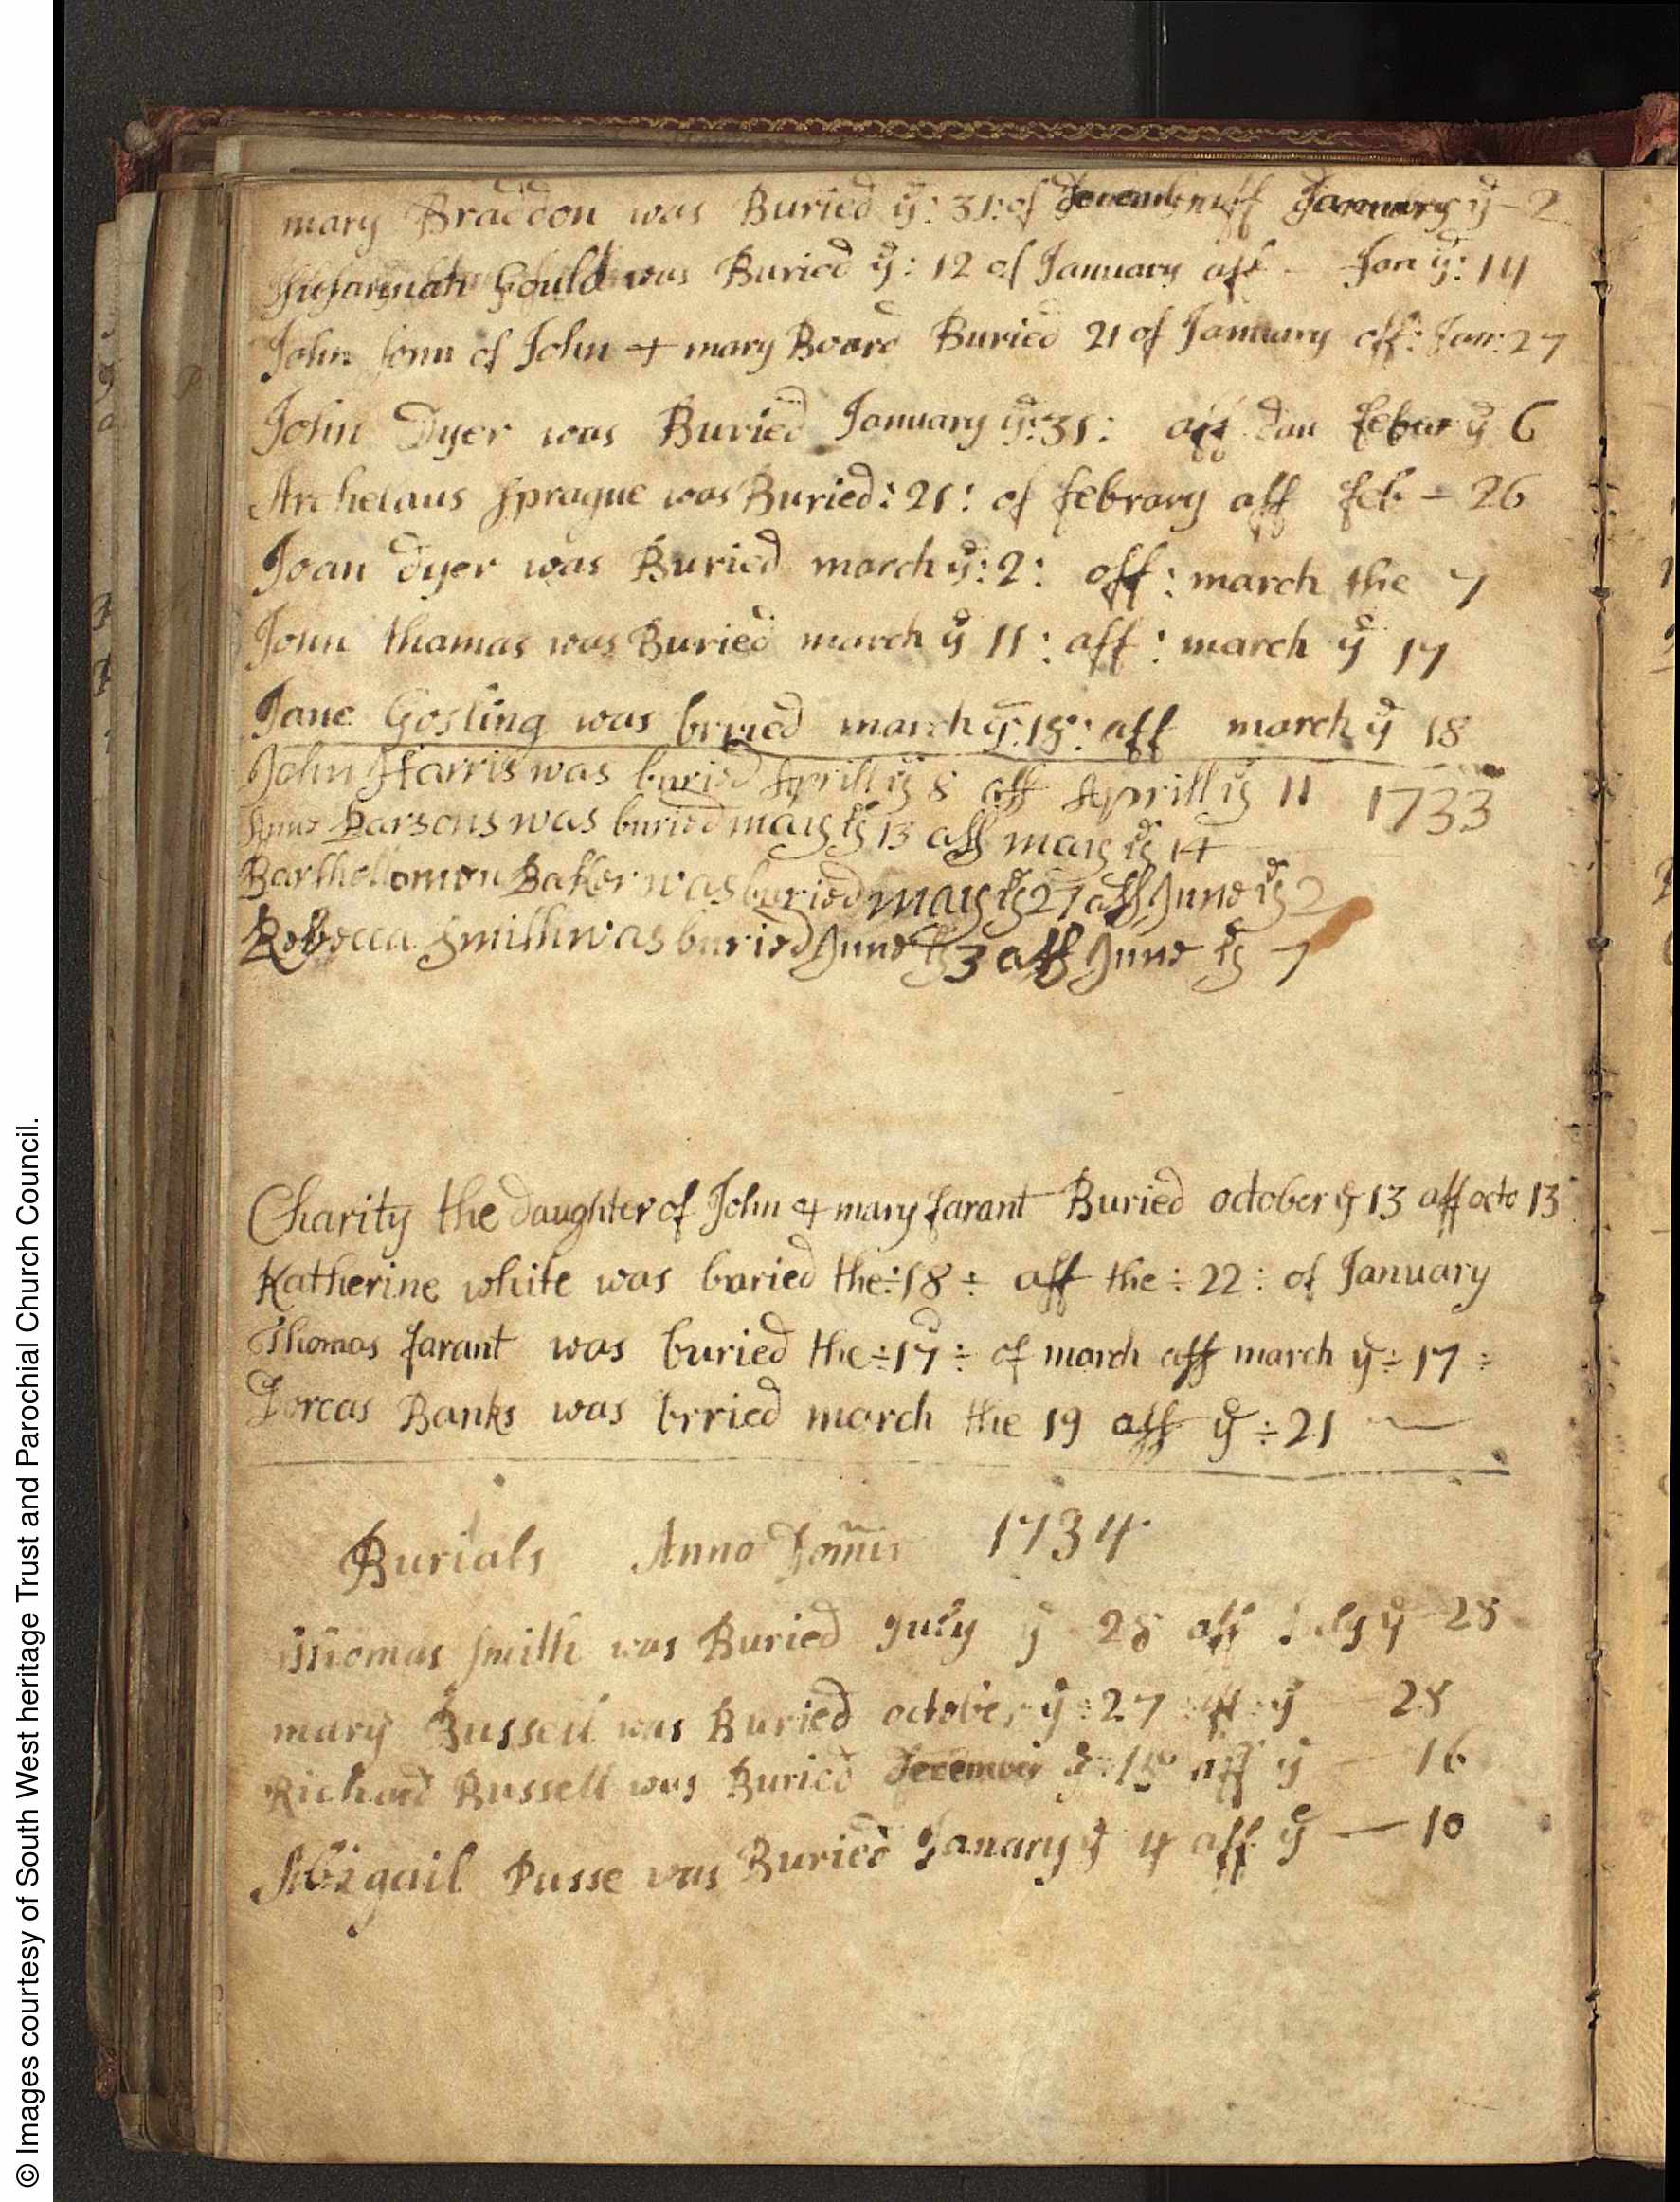 mary Braddon was Buried ye: 31: of Decemb aff January ye - 2
Gould was Buried ye: 12 of January aff Jan ye: 14
John sonn of John + mary Board Buried 21 of January aff: Jan: 27
John Dyer was Buried January ye: 31: aff dau febur ye 6
Archelaus Sprague was Buried: 21: of febrary aff feb - 26
Joan Dyer was Buried march ye: 2: aff: march the 7
John thamas was Buried march ye 11: aff: march ye 17
Jane Gosling was bruied march ye: 15: aff march ye 18
John Harris was buried Aprill ye 8 aff Aprill ye 11 1733
Anne Parsons was buried may ye 13 aff may ye 14
Barthollomew Baker was buried may ye 27 aff June ye 2
Rebecca Smith was buried June ye 3 aff June ye 7
Charity the daughter of John + mary farant Buried october ye 13 aff octo 13
Katherine white was buried the ÷ 18 ÷ aff the ÷ 22 : of January
Thomas farant was buried the ÷ 17 ÷ of march aff march ye ÷ 17 ÷
Dorcas Banks was brried march the 19 aff ye ÷ 21
Burials Anno Domi 1734
Thomas Smith was Buried July ye 28 aff July ye 28
mary Bussell was Buried october ye : 27 aff ye 28
Richard Bussell was Buried December ye : 15 aff ye - 16
Abigail Pusse was Buried Janary ye 4 aff ye - 10
© Images courtesy of South West heritage Trust and Parochial Church Council.